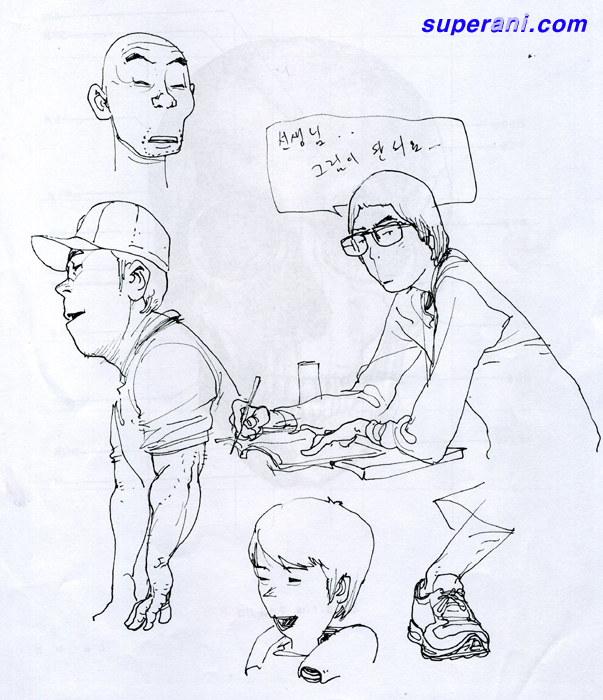 superani.com
선생님 . .
그림이 안 되요 ~